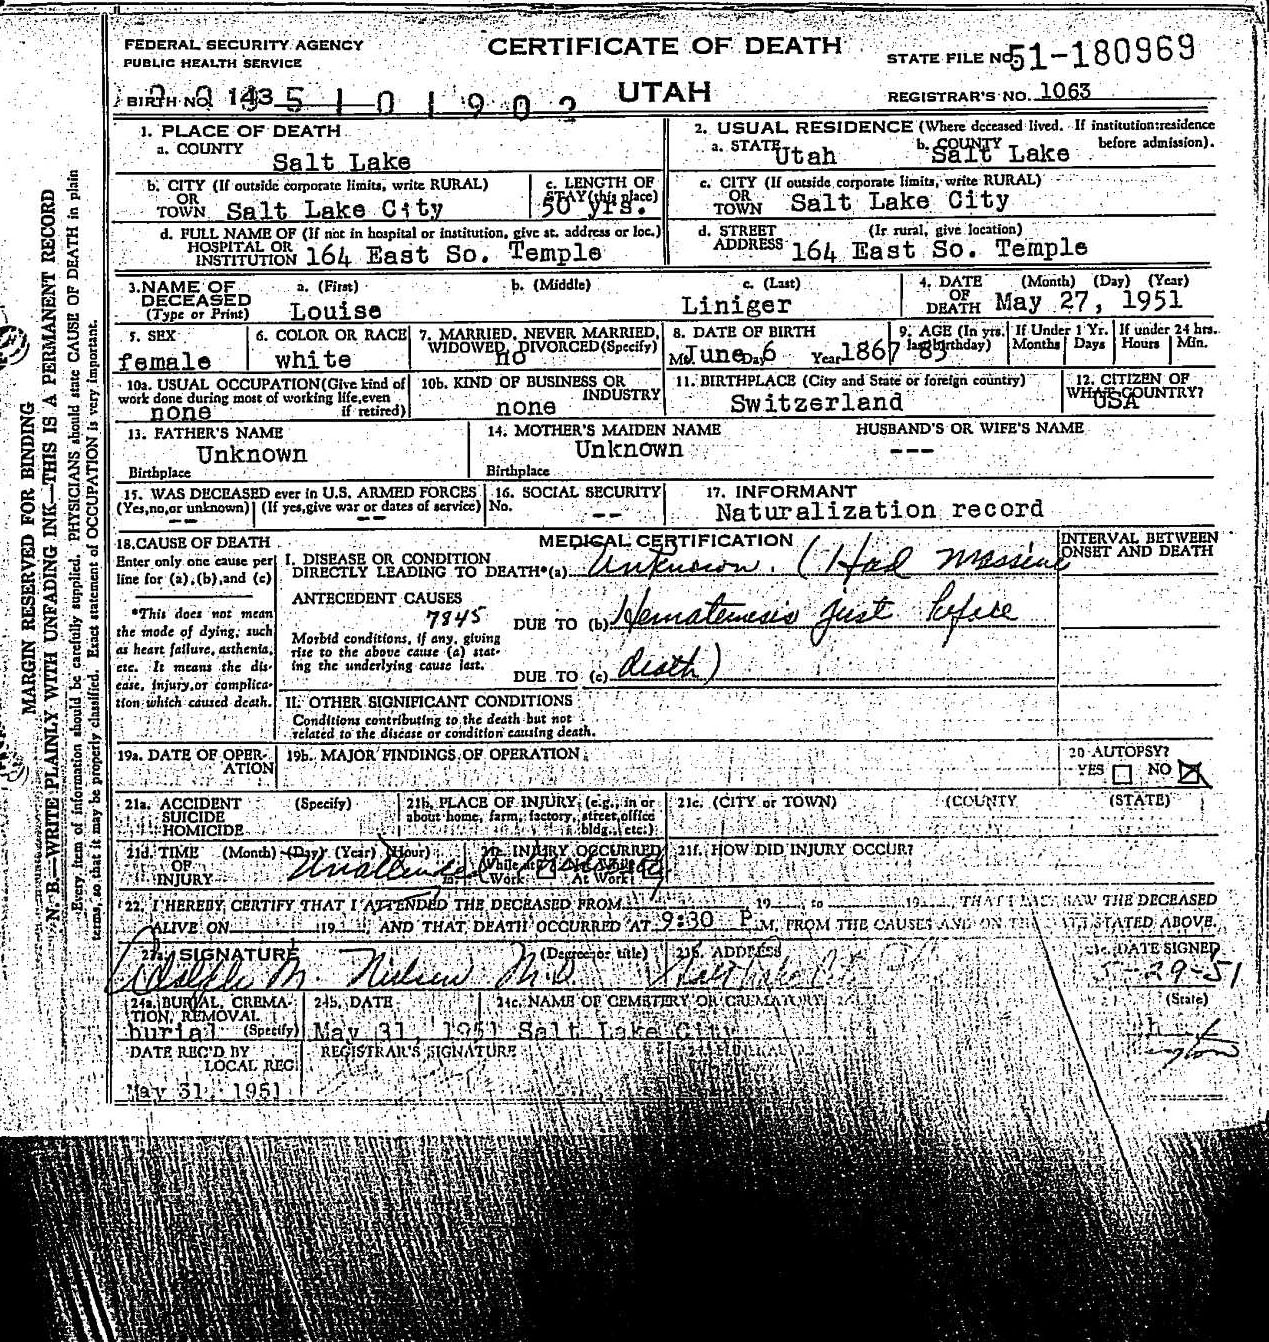 FEDERAL SECURITY AGENCY
PUBLIC HEALTH SERVICE
CERTIFICATE OF DEATH
UTAH
STATE FILE NO. 51-180969
REGISTRAR'S NO. 1063
BIRTH NO. 143
1. PLACE OF DEATH
a. COUNTY
Salt Lake
2. USUAL RESIDENCE (Where deceased lived. If institution: residence before admission).
a. STATE Utah b. COUNTY Salt Lake
b. CITY (If outside corporate limits, write RURAL)
OR
TOWN Salt Lake City
c. LENGTH OF
STAY (this place)
50 yrs.
c. CITY (If outside corporate limits, write RURAL)
OR
TOWN Salt Lake City
d. FULL NAME OF (If not in hospital or institution, give st. address or loc.)
HOSPITAL OR
INSTITUTION 164 East So. Temple
d. STREET (If rural, give location)
ADDRESS 164 East So. Temple
3. NAME OF
DECEASED
(Type or Print)
a. (First) b. (Middle) c. (Last)
Louise Liniger
4. DATE (Month) (Day) (Year)
OF
DEATH May 27, 1951
5. SEX
female
6. COLOR OR RACE
white
7. MARRIED, NEVER MARRIED,
WIDOWED, DIVORCED (Specify)
no
8. DATE OF BIRTH
Mo. June Day 6 Year 1867
9. AGE (In yrs.
last birthday)
83
If Under 1 Yr.
Months Days
If under 24 hrs.
Hours Min.
10a. USUAL OCCUPATION (Give kind of
work done during most of working life, even
if retired)
none
10b. KIND OF BUSINESS OR
INDUSTRY
none
11. BIRTHPLACE (City and State or foreign country)
Switzerland
12. CITIZEN OF
WHAT COUNTRY?
USA
13. FATHER'S NAME
Unknown
Birthplace
14. MOTHER'S MAIDEN NAME
Unknown
Birthplace
HUSBAND'S OR WIFE'S NAME
---
15. WAS DECEASED ever in U.S. ARMED FORCES
(Yes, no, or unknown) (If yes, give war or dates of service)
-- --
16. SOCIAL SECURITY
No.
--
17. INFORMANT
Naturalization record
18. CAUSE OF DEATH
Enter only one cause per
line for (a), (b), and (c)
*This does not mean
the mode of dying, such
as heart failure, asthenia,
etc. It means the dis-
ease, injury, or complica-
tion which caused death.
MEDICAL CERTIFICATION
INTERVAL BETWEEN
ONSET AND DEATH
I. DISEASE OR CONDITION
DIRECTLY LEADING TO DEATH* (a) Unknown. (Had massive
ANTECEDENT CAUSES
7845
Morbid conditions, if any, giving
rise to the above cause (a) stat-
ing the underlying cause last.
DUE TO (b) Hematemesis just before
DUE TO (c) death)
II. OTHER SIGNIFICANT CONDITIONS
Conditions contributing to the death but not
related to the disease or condition causing death.
19a. DATE OF OPER-
ATION
19b. MAJOR FINDINGS OF OPERATION
20 AUTOPSY?
YES NO
21a. ACCIDENT
SUICIDE
HOMICIDE
(Specify)
21b. PLACE OF INJURY (e.g., in or
about home, farm, factory, street, office
bldg., etc.)
21c. (CITY or TOWN) (COUNTY) (STATE)
21d. TIME (Month) (Day) (Year) (Hour)
OF
INJURY
Unattended
21e. INJURY OCCURRED
While at Not While
Work At Work
21f. HOW DID INJURY OCCUR?
22. I HEREBY CERTIFY THAT I ATTENDED THE DECEASED FROM 19 to 19 THAT I LAST SAW THE DECEASED
ALIVE ON 19 AND THAT DEATH OCCURRED AT 9:30 P.M. FROM THE CAUSES AND ON THE DATE STATED ABOVE.
23a. SIGNATURE (Degree or title)
Adolph M. Nielsen M.D.
23b. ADDRESS
Salt Lake City
23c. DATE SIGNED
5-29-51
24a. BURIAL, CREMA-
TION, REMOVAL
burial (Specify)
24b. DATE
May 31, 1951
24c. NAME OF CEMETERY OR CREMATORY
Salt Lake City
(State)
DATE REC'D BY
LOCAL REG.
May 31, 1951
REGISTRAR'S SIGNATURE
MARGIN RESERVED FOR BINDING
N. B.—WRITE PLAINLY WITH UNFADING INK—THIS IS A PERMANENT RECORD
Every item of information should be carefully supplied. PHYSICIANS should state CAUSE OF DEATH in plain
terms, so that it may be properly classified. Exact statement of OCCUPATION is very important.